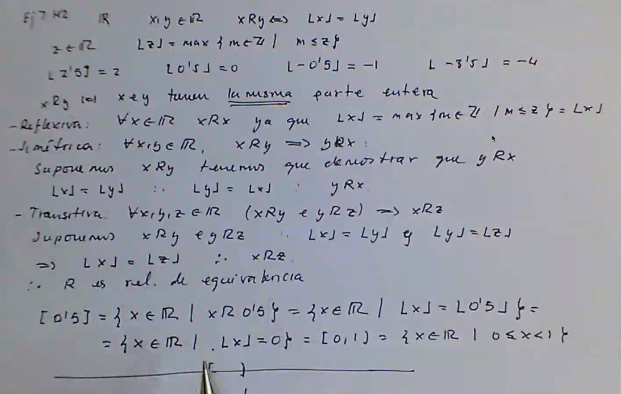 Ej 7 H2 ℝ x,y ∈ ℝ xRy ⟺ ⌊x⌋ = ⌊y⌋
z ∈ ℝ ⌊z⌋ = max { m ∈ ℤ | m ≤ z }
⌊2'5⌋ = 2 ⌊0'5⌋ = 0 ⌊-0'5⌋ = -1 ⌊-3'5⌋ = -4
xRy ⟺ x e y tienen la misma parte entera
- Reflexiva: ∀x ∈ ℝ xRx ya que ⌊x⌋ = max { m ∈ ℤ | m ≤ x } = ⌊x⌋
- Simétrica: ∀x,y ∈ ℝ, xRy ⟹ yRx :
Suponemos xRy tenemos que demostrar que yRx
⌊x⌋ = ⌊y⌋ ∴ ⌊y⌋ = ⌊x⌋ ∴ yRx
- Transitiva: ∀x,y,z ∈ ℝ (xRy e yRz) ⟹ xRz
Suponemos xRy e yRz ∴ ⌊x⌋ = ⌊y⌋ y ⌊y⌋ = ⌊z⌋
⟹ ⌊x⌋ = ⌊z⌋ ∴ xRz
∴ R es rel. de equivalencia
[0'5] = { x ∈ ℝ | xR 0'5 } = { x ∈ ℝ | ⌊x⌋ = ⌊0'5⌋ } =
= { x ∈ ℝ | ⌊x⌋ = 0 } = [0,1) = { x ∈ ℝ | 0 ≤ x < 1 }